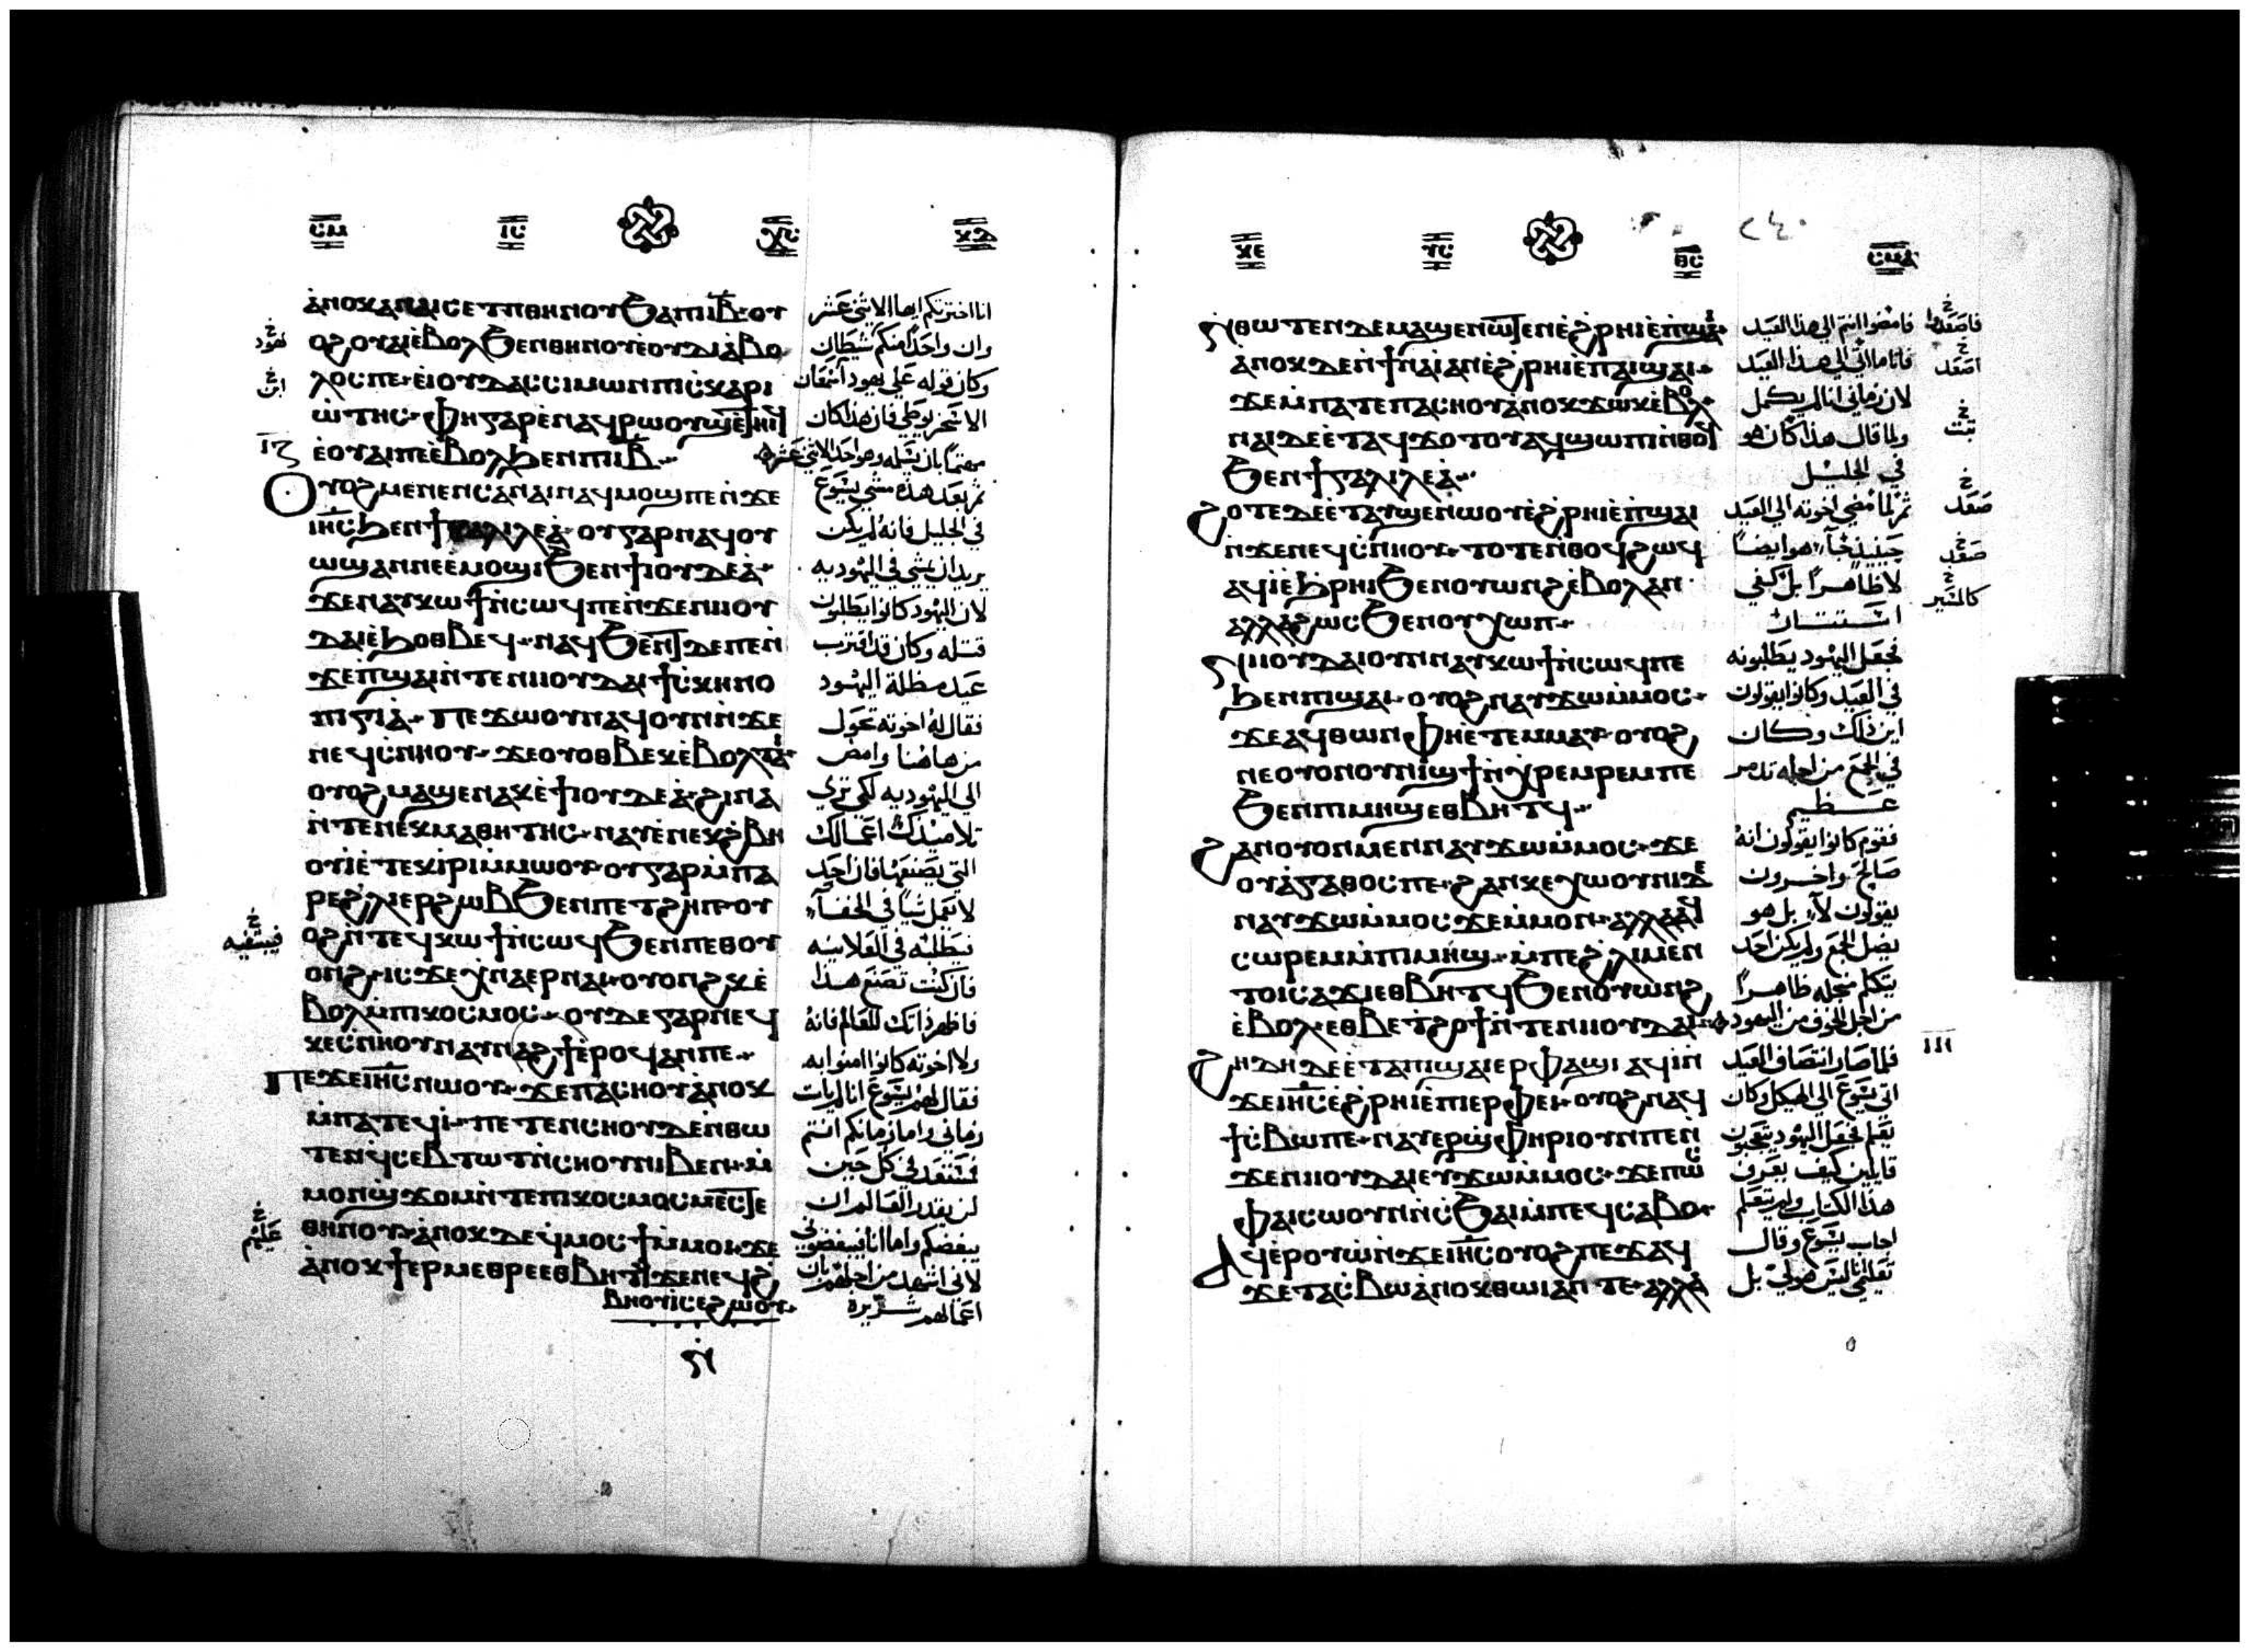 ⲥⲙ ⲓⲥ ⲭⲥ ⲝⲇ
ⲁⲛⲟⲕ ⲁⲛ ⲁⲓⲥⲉⲧⲡ ⲑⲏⲛⲟⲩ ϧⲁ ⲡⲓⲓ̅ⲃ̅ ⲟⲩ
ⲟϩ ⲟⲩⲁⲓ ⲉⲃⲟⲗ ϧⲉⲛ ⲑⲏⲛⲟⲩ ⲉⲟⲩⲇⲓⲁⲃⲟ
ⲗⲟⲥ ⲡⲉ ⲉ ⲓⲟⲩⲇⲁⲥ ⲥⲓⲙⲱⲛ ⲡⲓⲥⲕⲁⲣⲓ
ⲱⲧⲏⲥ ⲫⲏ ⲅⲁⲣ ⲉⲛⲁϥⲣⲱⲟⲩϣ ⲉⲧⲏⲓϥ
ⲉⲟⲩⲁⲓ ⲡⲉ ⲉⲃⲟⲗ ϧⲉⲛ ⲡⲓⲓ̅ⲃ̅
ⲟⲩⲟϩ ⲙⲉⲛⲉⲛⲥⲁ ⲛⲁⲓ ⲛⲁϥⲙⲟϣⲓ ⲡⲉ ⲛϫⲉ
ⲓⲏⲥ ϧⲉⲛ ϯⲅⲁⲗⲓⲗⲉⲁ ⲟⲩ ⲅⲁⲣ ⲛⲁϥⲟⲩ
ⲱϣ ⲁⲛ ⲡⲉ ⲉⲙⲟϣⲓ ϧⲉⲛ ϯⲓⲟⲩⲇⲉⲁ
ϫⲉ ⲛⲁⲩⲕⲱϯ ⲛⲥⲱϥ ⲡⲉ ⲛϫⲉ ⲛⲓⲓⲟⲩ
ⲇⲁⲓ ⲉϧⲟⲑⲃⲉϥ ⲛⲁϥϧⲉⲛⲧ ⲇⲉ ⲡⲉ ⲛ
ϫⲉ ⲡϣⲁⲓ ⲛⲧⲉ ⲛⲓⲓⲟⲩⲇⲁⲓ ϯⲥⲕⲏⲛⲟ
ⲡⲓⲅⲓⲁ ⲡⲉϫⲱⲟⲩ ⲛⲁϥ ⲟⲩⲛ ⲛϫⲉ
ⲛⲉϥⲥⲛⲏⲟⲩ ϫⲉ ⲟⲩⲟⲑⲃⲉⲕ ⲉⲃⲟⲗ ⲧⲁⲓ
ⲟⲩⲟϩ ⲙⲁϣⲉ ⲛⲁⲕ ⲉϯⲓⲟⲩⲇⲉⲁ ϩⲓⲛⲁ
ⲛⲧⲉ ⲛⲉⲕⲙⲁⲑⲏⲧⲏⲥ ⲛⲁⲩ ⲉⲛⲉⲕϩⲃⲏ
ⲟⲩⲓ ⲉⲧⲉⲕⲓⲣⲓ ⲙⲙⲱⲟⲩ ⲟⲩ ⲅⲁⲣ ⲙⲡⲁ
ⲣⲉ ϩⲗⲓ ⲉⲣ ϩⲱⲃ ϧⲉⲛ ⲡⲉⲧϩⲏⲡ ⲟⲩ
ⲟϩ ⲛⲧⲉϥⲕⲱϯ ⲛⲥⲱϥ ϧⲉⲛ ⲡⲉⲑⲟⲩ
ⲟⲛϩ ⲓⲥϫⲉ ⲭⲛⲁⲉⲣ ⲛⲁⲓ ⲟⲩⲟⲛϩⲕ ⲉ
ⲃⲟⲗ ⲙⲡⲓⲕⲟⲥⲙⲟⲥ ⲟⲩⲇⲉ ⲅⲁⲣ ⲛⲉϥ
ⲕⲉⲥⲛⲏⲟⲩ ⲛⲁⲩⲛⲁϩϯ ⲉⲣⲟϥ ⲁⲛ ⲡⲉ
ⲡⲉϫⲉ ⲓⲏⲥ ⲛⲱⲟⲩ ϫⲉ ⲡⲁⲥⲛⲟⲩ ⲁⲛⲟⲕ
ⲙⲡⲁⲧⲉϥⲓ ⲡⲉⲧⲉⲛⲥⲛⲟⲩ ⲇⲉ ⲛⲑⲱ
ⲧⲉⲛ ϥⲥⲉⲃⲧⲱⲧ ⲛⲥⲛⲟⲩ ⲛⲓⲃⲉⲛ ⲙ
ⲙⲟⲛ ϣϫⲟⲙ ⲛⲧⲉ ⲡⲓⲕⲟⲥⲙⲟⲥ ⲙⲉⲥⲧⲉ
ⲑⲏⲛⲟⲩ ⲁⲛⲟⲕ ⲇⲉ ϥⲙⲟⲥϯ ⲙⲙⲟⲓ ϫⲉ
ⲁⲛⲟⲕ ϯⲉⲣⲙⲉⲑⲣⲉ ⲉⲑⲃⲏⲧϥ ϫⲉ ⲛⲉϥϩ
ⲃⲏⲟⲩⲓ ⲥⲉϩⲱⲟⲩ
انا اخترتكم ايها الاثني عشر
وان واحدا منكم شيطان
وكان قوله على يهودا سمعان
الاسخريوطي فان هذا كان
مهتما بان يسلمه وهو احد الاثني عشر
ثم بعد هذه مشي يسوع
في الجليل فانه لم يكن
يريد ان يمشي في اليهوديه
لان اليهود كانوا يطلبون
قتله وكان قد اقترب
عيد مظلة اليهود
فقال له اخوته تحول
من هاهنا وامض
الي اليهوديه لكي تري
تلاميذك اعمالك
التي تصنعها فان احد
لا يعمل شيا في الخفآ
فيطلبه في العلانيه
فان كنت تصنع هذا
فاظهر ذاتك للعالم فانه
ولا اخوته كانوا امنوا به
فقال لهم يسوع انا لم يات
زماني واما زمانكم انتم
فمستعد في كل حين
لن يقدر العالم ان
يبغضكم واما انا فيبغضوني
لاني اشهد من اجلهم بان
اعمالهم شريرة
يهود
ابن
ⲓⲍ
عليهم
ⲝⲉ ⲩⲥ ⲑⲥ ⲥⲙⲁ
٢٤٠
ⲛⲑⲱⲧⲉⲛ ⲇⲉ ⲙⲁϣⲉ ⲛⲱⲧⲉⲛ ⲉϩⲣⲏⲓ ⲉⲡϣⲁⲓ
ⲁⲛⲟⲕ ⲇⲉ ⲛϯⲛⲁⲓ ⲁⲛ ⲉϩⲣⲏⲓ ⲉⲡⲁⲓϣⲁⲓ
ϫⲉ ⲙⲡⲁⲧⲉ ⲡⲁⲥⲛⲟⲩ ⲁⲛⲟⲕ ϫⲱⲕ ⲉⲃⲟⲗ
ⲛⲁⲓ ⲇⲉ ⲉⲧⲁϥϫⲟⲧⲟⲩ ⲁϥϣⲱⲡⲓ ⲛⲑⲟϥ
ϧⲉⲛ ϯⲅⲁⲗⲓⲗⲉⲁ
ϩⲟⲧⲉ ⲇⲉ ⲉⲧⲁⲩϣⲉⲛⲱⲟⲩ ⲉϩⲣⲏⲓ ⲉⲡϣⲁⲓ
ⲛϫⲉ ⲛⲉϥⲥⲛⲏⲟⲩ ⲧⲟⲧⲉ ⲛⲑⲟϥ ϩⲱϥ
ⲁϥⲓ ⲉϧⲣⲏⲓ ϧⲉⲛ ⲟⲩⲱⲛϩ ⲉⲃⲟⲗ ⲁⲛ
ⲁⲗⲗⲁ ϩⲱⲥ ϧⲉⲛ ⲟⲩⲭⲱⲡ
ⲛⲓⲓⲟⲩⲇⲁⲓ ⲟⲩⲛ ⲛⲁⲩⲕⲱϯ ⲛⲥⲱϥ ⲡⲉ
ϧⲉⲛ ⲡⲓϣⲁⲓ ⲟⲩⲟϩ ⲛⲁⲩϫⲱ ⲙⲙⲟⲥ
ϫⲉ ⲁϥⲑⲱⲛ ⲫⲏ ⲉⲧⲉⲙⲙⲁⲩ ⲟⲩⲟϩ
ⲛⲉ ⲟⲩⲟⲛ ⲟⲩⲛⲓϣϯ ⲛⲭⲣⲉⲙⲣⲉⲙ ⲡⲉ
ϧⲉⲛ ⲡⲓⲙⲏϣ ⲉⲑⲃⲏⲧϥ
ϩⲁⲛⲟⲩⲟⲛ ⲙⲉⲛ ⲛⲁⲩϫⲱ ⲙⲙⲟⲥ ϫⲉ
ⲟⲩⲁⲅⲁⲑⲟⲥ ⲡⲉ ϩⲁⲛⲕⲉⲭⲱⲟⲩⲛⲓ ⲇⲉ
ⲛⲁⲩϫⲱ ⲙⲙⲟⲥ ϫⲉ ⲙⲙⲟⲛ ⲁⲗⲗⲁ ϥ
ⲥⲱⲣⲉⲙ ⲙⲡⲓⲙⲏϣ ⲙⲡⲉ ϩⲗⲓ ⲙⲉⲛ
ⲧⲟⲓ ⲥⲁϫⲓ ⲉⲑⲃⲏⲧϥ ϧⲉⲛ ⲟⲩⲱⲛϩ
ⲉⲃⲟⲗ ⲉⲑⲃⲉ ⲧϩⲟϯ ⲛⲧⲉ ⲛⲓⲓⲟⲩⲇⲁⲓ
ϩⲏⲇⲏ ⲇⲉ ⲉⲧⲁ ⲡϣⲁⲓ ⲉⲣ ⲫⲁϣⲓ ⲁϥⲓ ⲛ
ϫⲉ ⲓⲏⲥ ⲉϩⲣⲏⲓ ⲉⲡⲓⲉⲣⲫⲉⲓ ⲟⲩⲟϩ ⲛⲁϥ
ϯⲥⲃⲱ ⲡⲉ ⲛⲁⲩⲉⲣϣⲫⲏⲣⲓ ⲟⲩⲛ ⲡⲉ ⲛ
ϫⲉ ⲛⲓⲓⲟⲩⲇⲁⲓ ⲉⲩϫⲱ ⲙⲙⲟⲥ ϫⲉ ⲡⲱⲥ
ⲫⲁⲓ ⲥⲱⲟⲩⲛ ⲛⲥϧⲁⲓ ⲙⲡⲉϥⲥⲁⲃⲟ
ⲁϥⲉⲣⲟⲩⲱ ⲛϫⲉ ⲓⲏⲥ ⲟⲩⲟϩ ⲡⲉϫⲁϥ
ϫⲉ ⲧⲁⲥⲃⲱ ⲁⲛⲟⲕ ⲑⲱⲓ ⲁⲛ ⲧⲉ ⲁⲗⲗⲁ
فامضوا انتم الي هذا العيد
فانا ما اتي الي هذا العيد
لان زماني انا لم يكمل
ولما قال هذا كان هو
في الجليل
ثم لما مضي اخوته الي العيد
حينيذ جآ هو ايضا
لا ظاهرا بل كفي
استتار
فجعل اليهود يطلبونه
في العيد وكانوا يقولون
اين ذلك وكان
في الجمع من اجله تذمر
عظيم
فقوم كانوا يقولون انه
صالح واخرون
يقولون لا بل هو
يضل الجمع ولم يكن احد
يتكلم من اجله ظاهرا
من اجل الخوف من اليهود
فلما صار انتصاف العيد
اتى يسوع الي الهيكل وكان
يعلم فجعل اليهود يتعجبون
قايلين كيف يعرف
هذا الكتاب ولم يتعلم
اجاب يسوع وقال
تعليمي انا ليس هو لي بل
فاصعدوا
اصعد
صعد
صعد